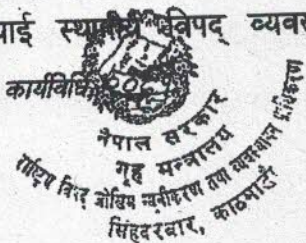 पाई स्थानीय विपद् व्यवस
कार्यविधि
नेपाल सरकार
गृह मन्त्रालय
राष्ट्रिय विपद् जोखिम न्यूनीकरण तथा व्यवस्थापन प्राधिकरण
सिंहदरबार, काठमाडौं